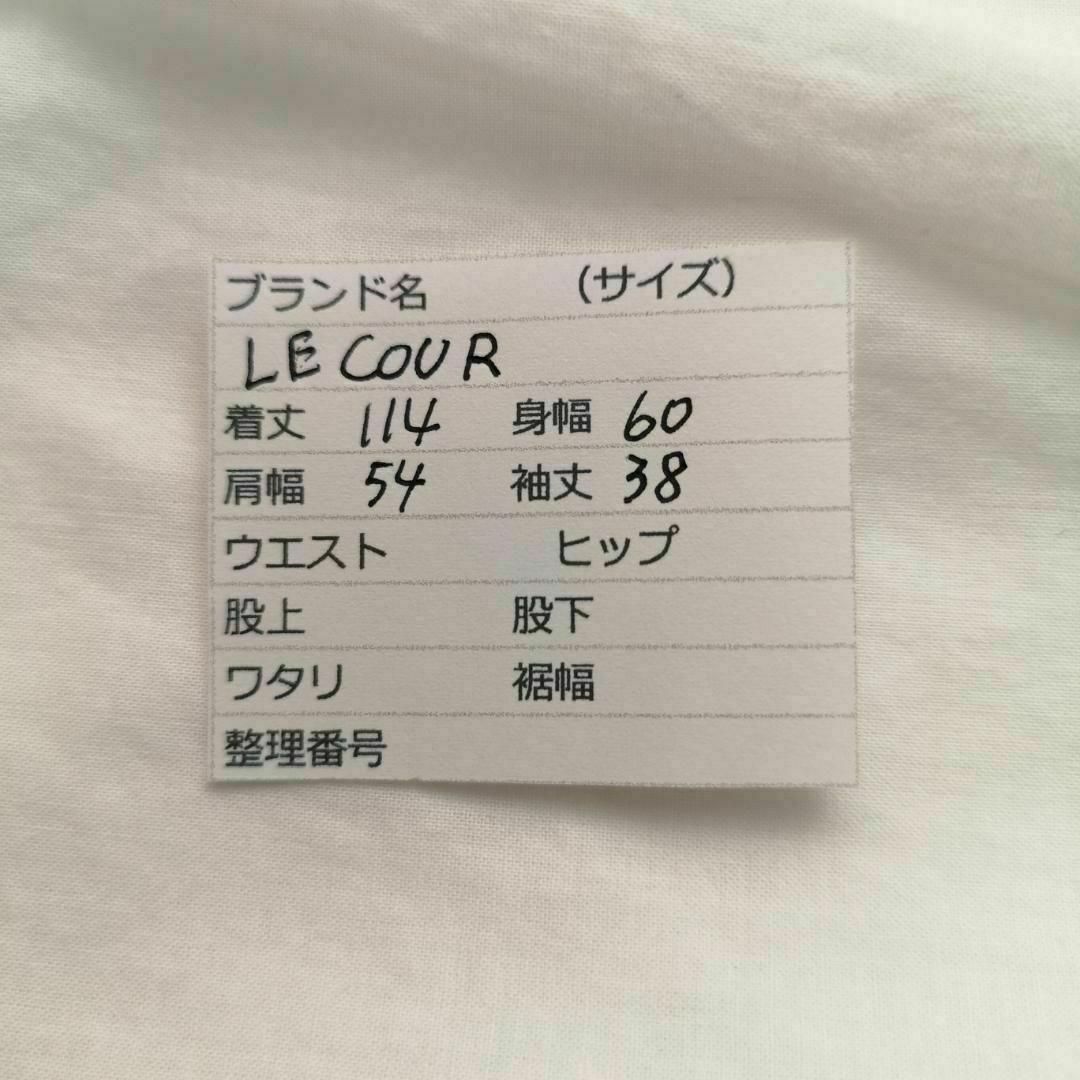 ブランド名 (サイズ)
LE COUR
着丈 114 身幅 60
肩幅 54 袖丈 38
ウエスト ヒップ
股上 股下
ワタリ 裾幅
整理番号